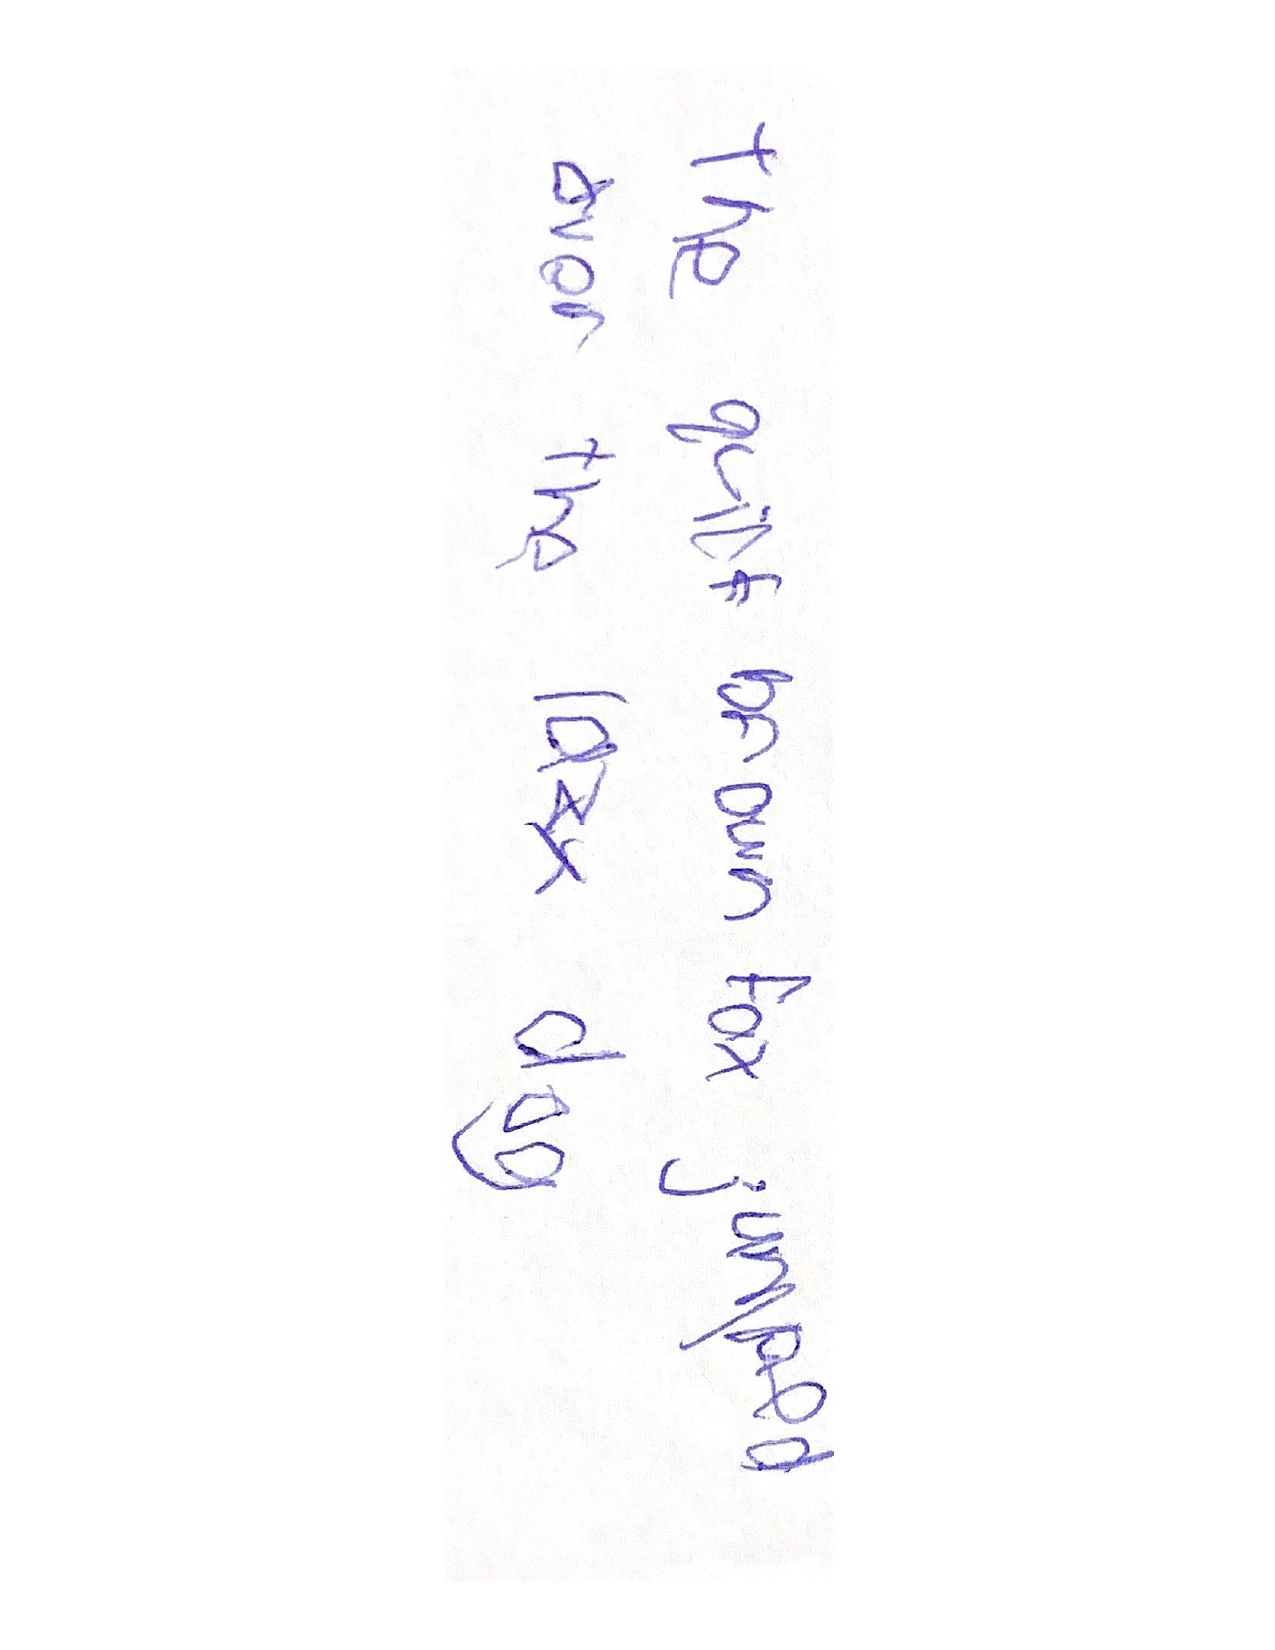 the quick brown fox jumped
over the lazy dog